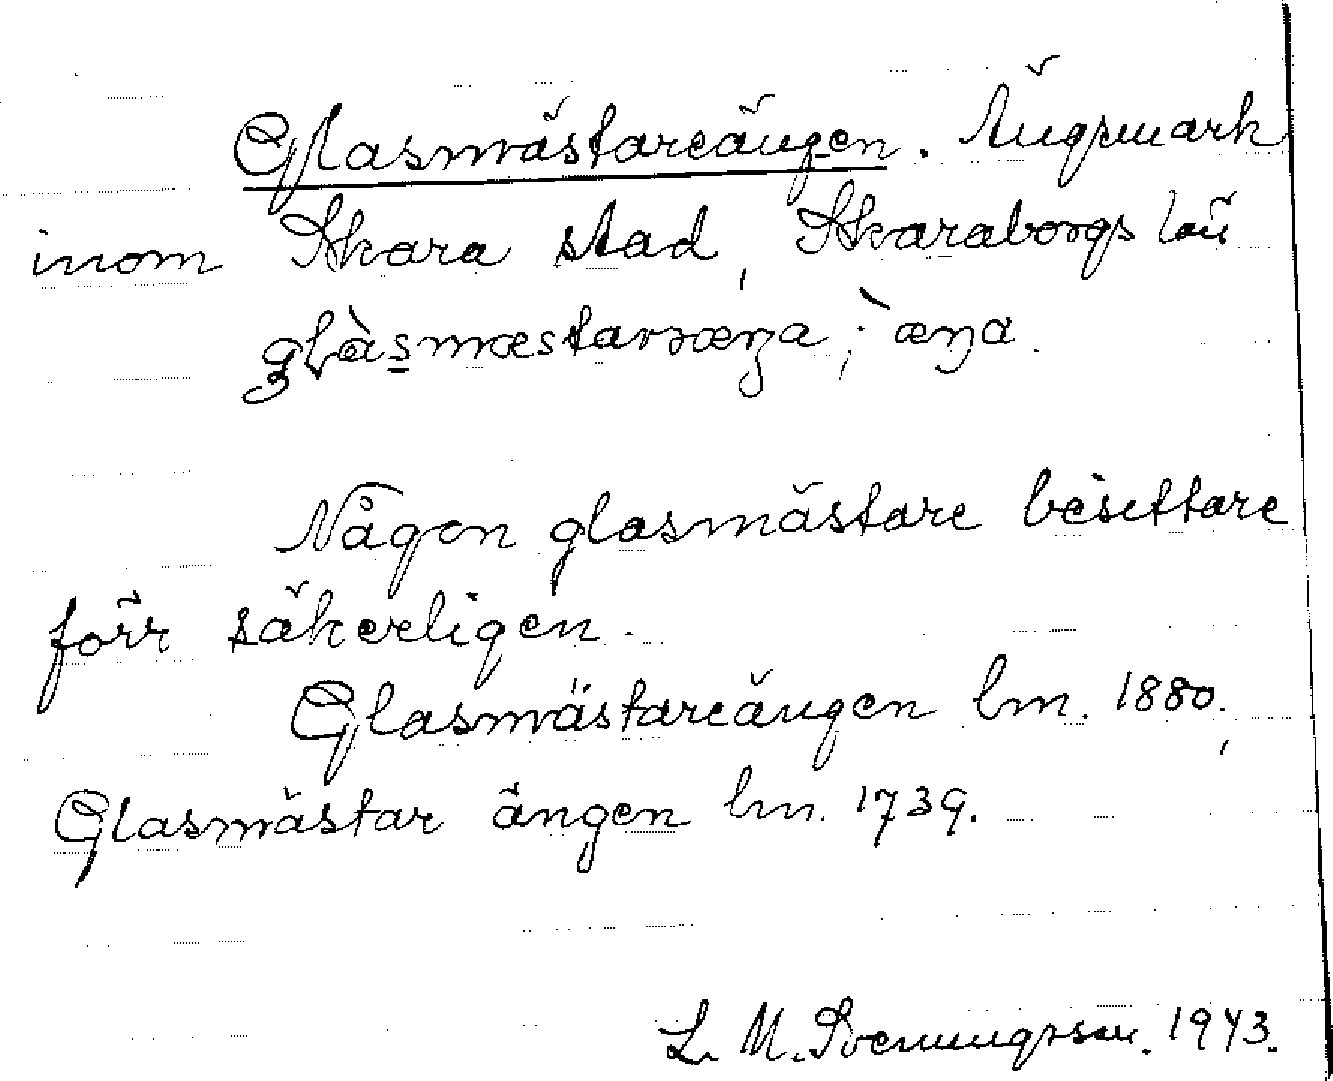 Glasmästareängen. Ängsmark
inom Skara stad, Skaraborgs län
glàsmæstarɔæŋa; `æŋa.
Någon glasmästare besuttare
förr säkerligen.
Glasmästareängen lm. 1880,
Glasmästar ängen lm. 1739.
L. M. Svenungsson. 1943.